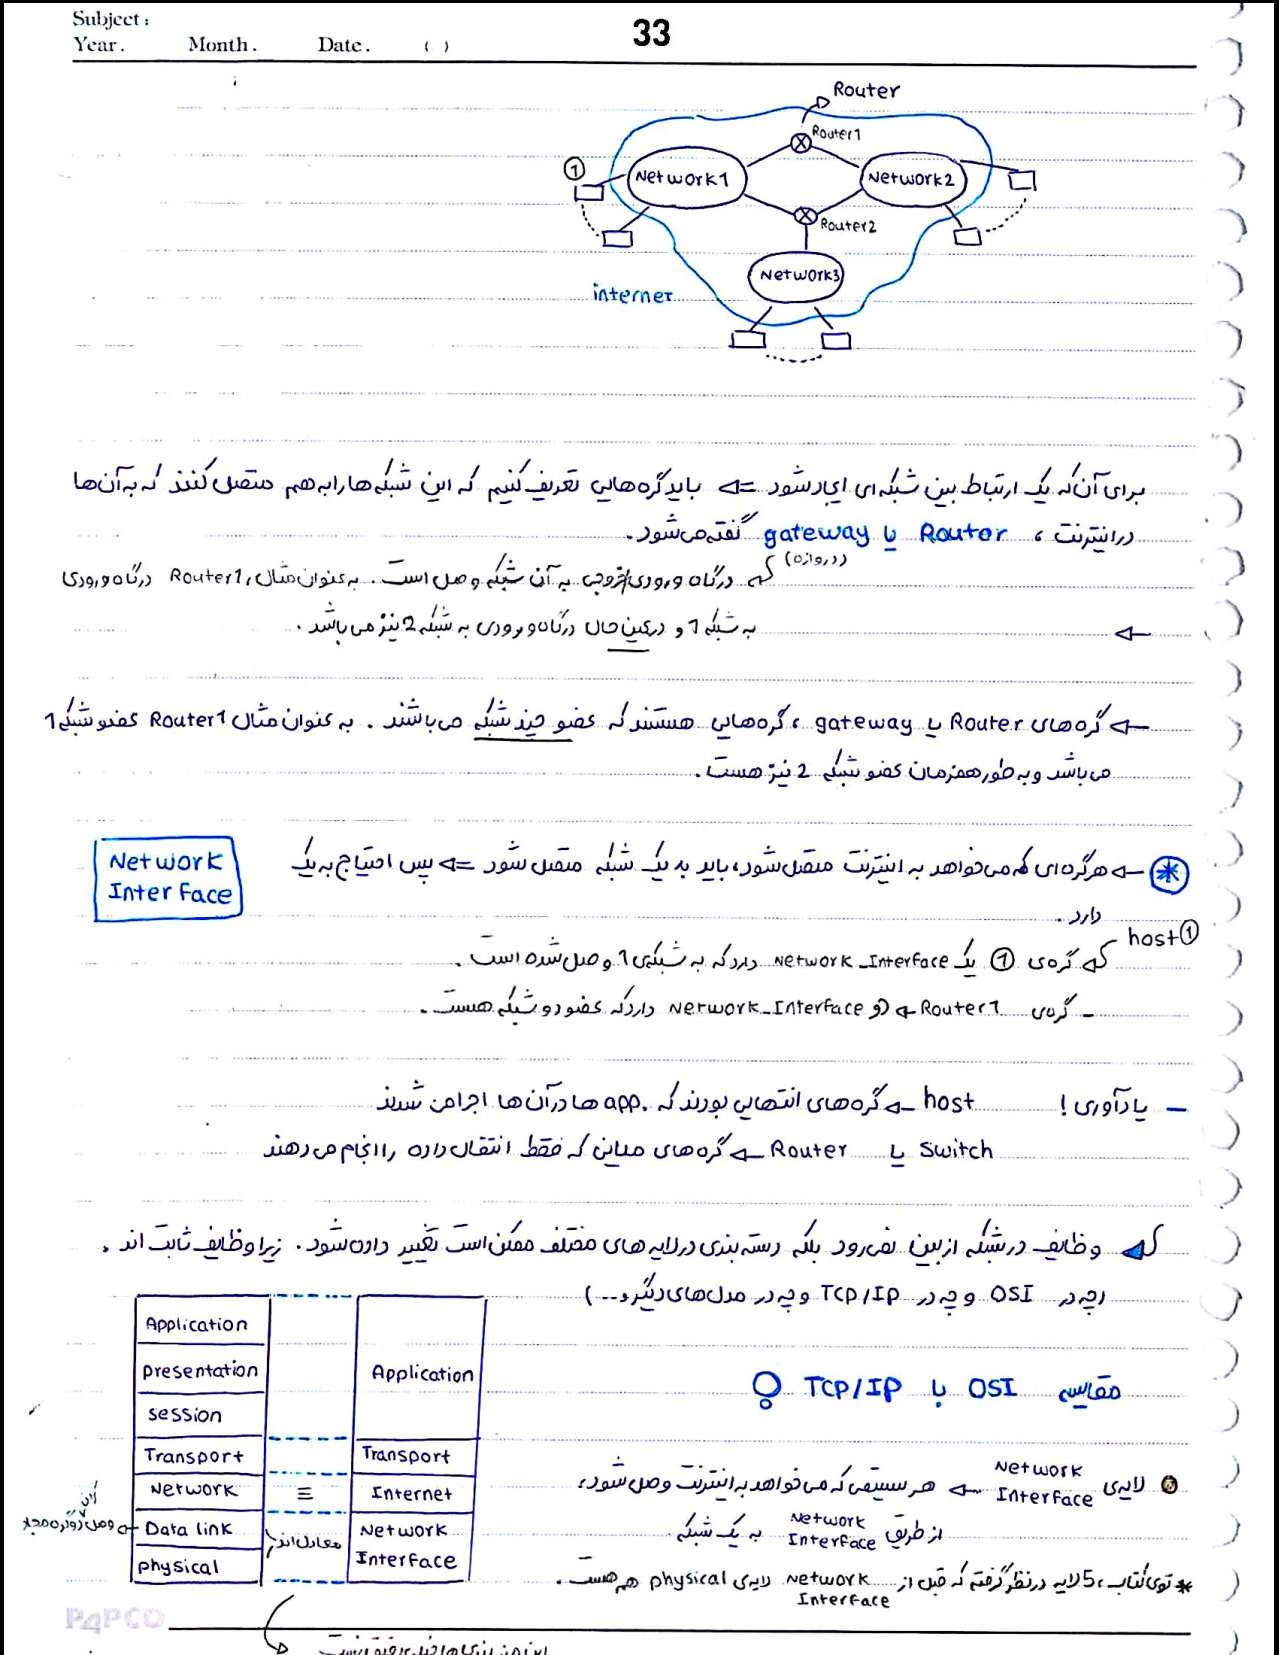 Subject :
Year . Month . Date . ( )
33
Router
Router1
①
Network1
Network2
Router2
Network3
internet
برای آن که یک ارتباط بین شبکه ای ایجاد شود ⇐ باید گره هایی تعریف کنیم که این شبکه ها را به هم متصل کنند که به آن ها
در اینترنت ، Router یا gateway گفته می شود.
(دروازه)
درگاه ورودی/خروجی به آن شبکه وصل است . به عنوان مثال، Router1 درگاه ورودی
← به شبکه 1 و در عین حال درگاه ورودی به شبکه 2 نیز می باشد .
← گره های Router یا gateway ، گره هایی هستند که عضو چند شبکه می باشند . به عنوان مثال Router1 عضو شبکه 1
می باشد و به طور همزمان عضو شبکه 2 نیز هست .
* ← هر گره ای که می خواهد به اینترنت متصل شود، باید به یک شبکه متصل شود ⇐ پس احتیاج به یک
Network
Interface
دارد .
host①
گره ی ① یک Network_Interface دارد که به شبکه ی 1 وصل شده است .
- گره ی Router1 ← دو Network_Interface دارد که عضو دو شبکه هست .
- یادآوری ! host ← گره های انتهایی بودند که app. ها در آن ها اجرا می شدند
Switch یا Router ← گره های میانی که فقط انتقال داده را انجام می دهند
وظایف در شبکه از بین نمی رود بلکه دسته بندی در لایه های مختلف ممکن است تغییر داده شود . زیرا وظایف ثابت اند .
(چه در OSI و چه در TCP/IP و چه در مدل های دیگر و...)
مقایسه OSI با TCP/IP :
Application
presentation
session
Transport
Network
Data link
physical
≡
معادل اند
Application
Transport
Internet
Network
Interface
وصل دو گره مجاور
لایه ی Network Interface ← هر سیستمی که می خواهد به اینترنت وصل شود،
از طریق Network Interface به یک شبکه
* توی کتاب ، 5 لایه در نظر گرفته که قبل از Network Interface لایه ی physical هم هست .
PAPCO